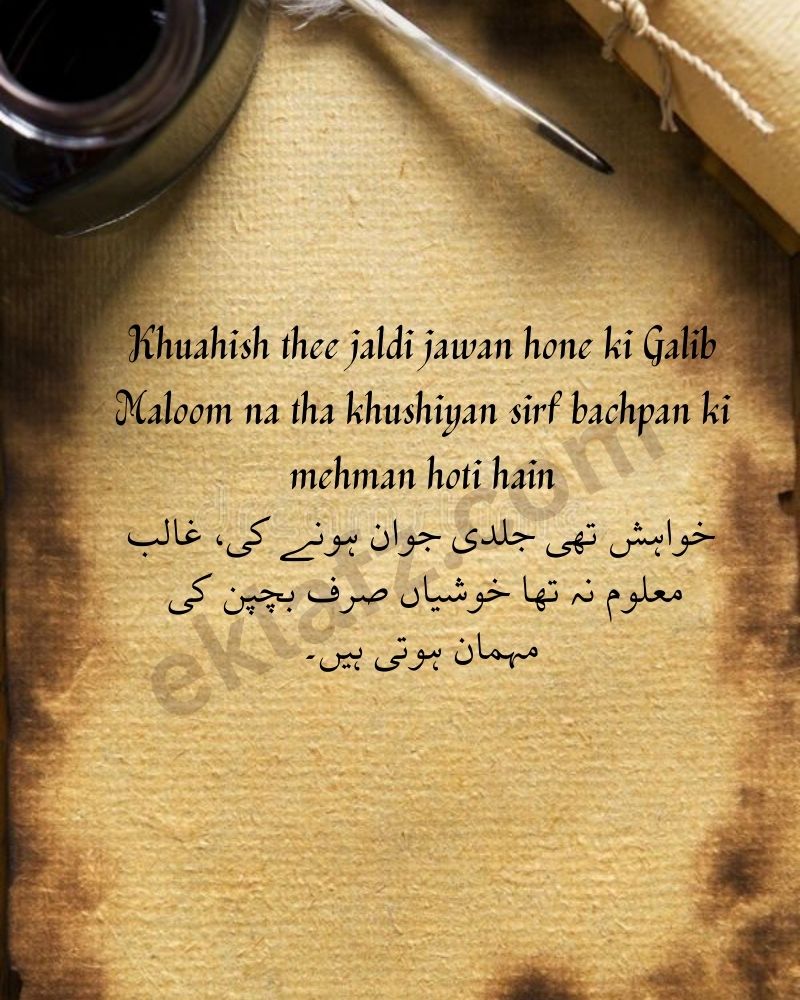 Khuahish thee jaldi jawan hone ki Galib
Maloom na tha khushiyan sirf bachpan ki
mehman hoti hain
خواہش تھی جلدی جوان ہونے کی، غالب
معلوم نہ تھا خوشیاں صرف بچپن کی
مہمان ہوتی ہیں۔